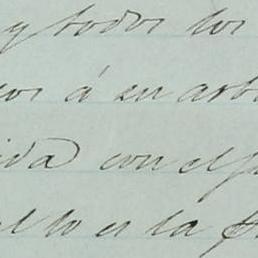 y todos los
á su arb
ida con el
lo es la